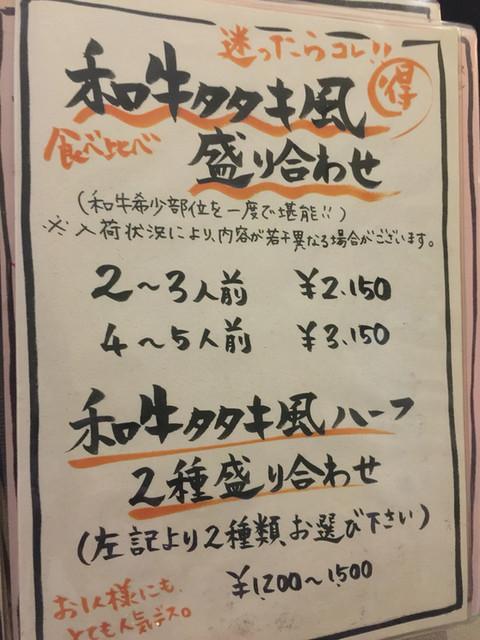 迷ったらコレ!!
和牛タタキ風
得
食べ比べ
盛り合わせ
(和牛希少部位を一度で堪能!!)
※入荷状況により、内容が若干異なる場合がございます。
2〜3人前 ¥2.150
4〜5人前 ¥3.150
和牛タタキ風ハーフ
2種盛り合わせ
(左記より2種類、お選び下さい)
¥1,200〜1,500
お1人様にも
とても人気デス。